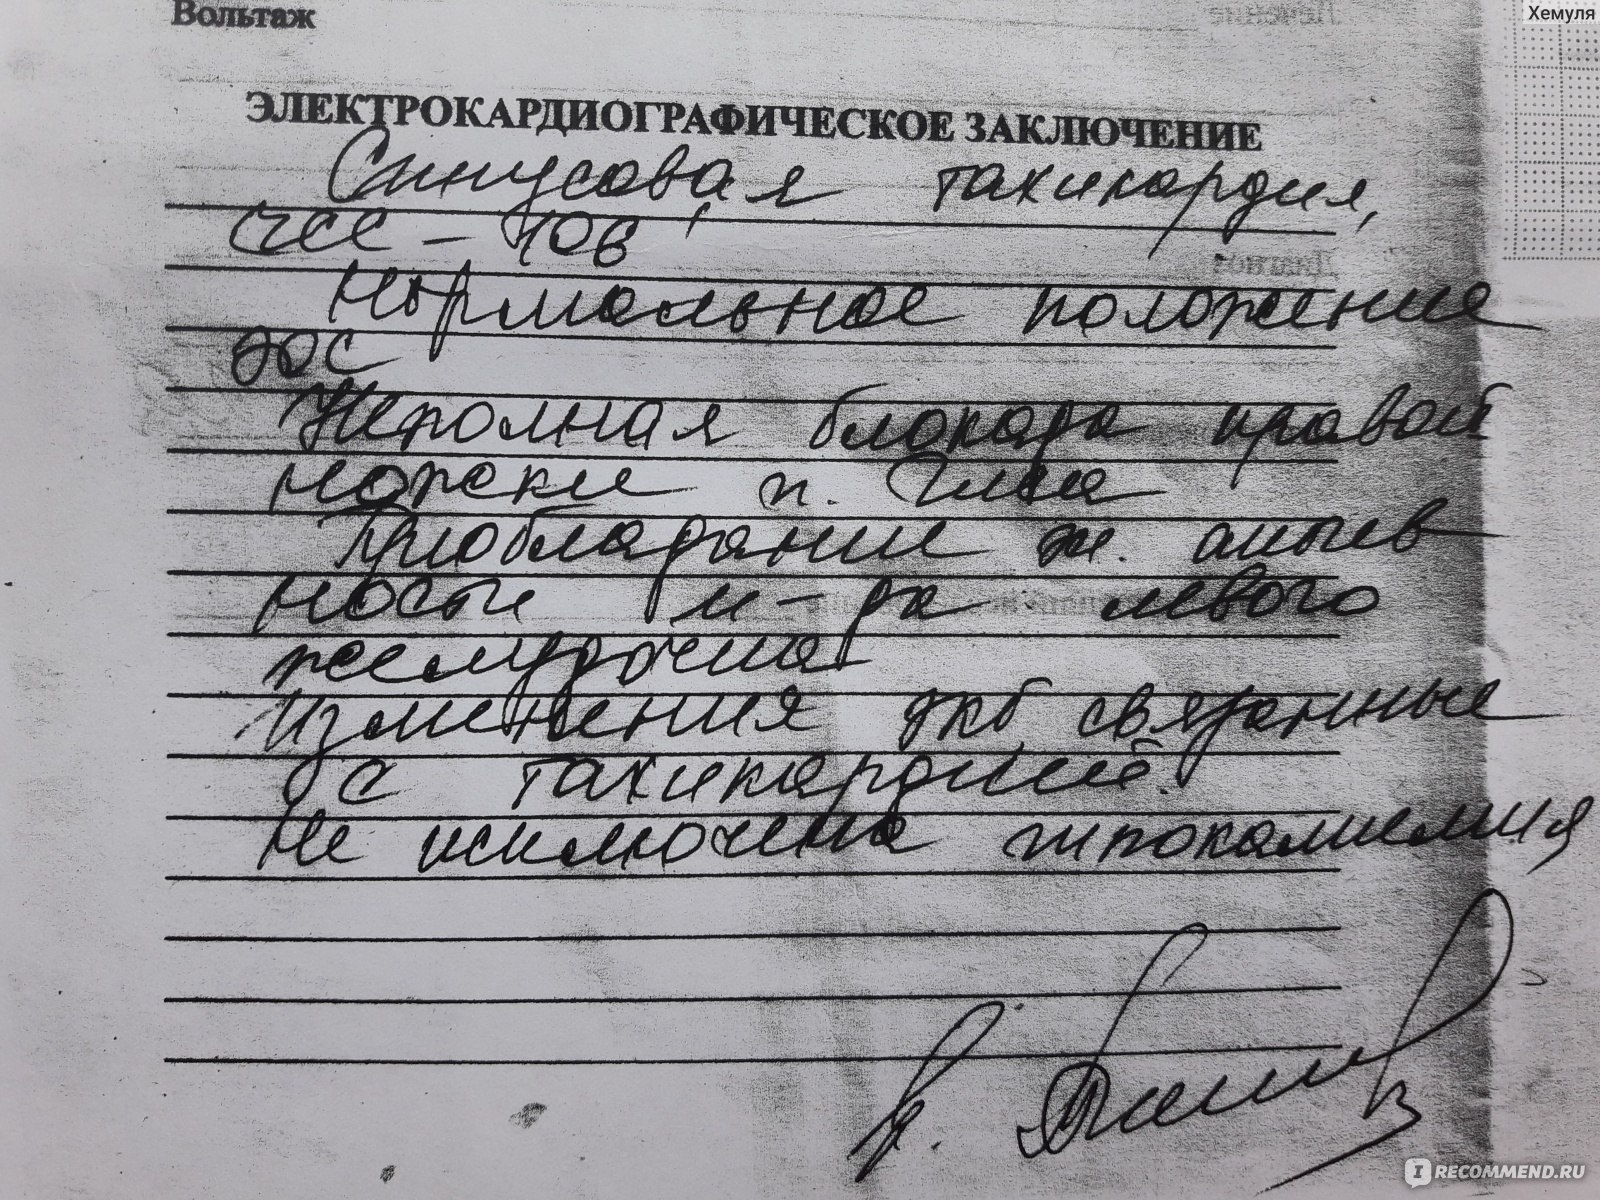 Вольтаж
Хемуля
ЭЛЕКТРОКАРДИОГРАФИЧЕСКОЕ ЗАКЛЮЧЕНИЕ
Синусовая тахикардия,
ЧСС - 106'
Нормальное положение
ЭОС
Неполная блокада правой
ножки п. Гиса
Преобладание эл. актив
ности м-да левого
желудочка
Изменения экг связанные
с тахикардией.
Не исключена гипокалиемия
IRECOMMEND.RU